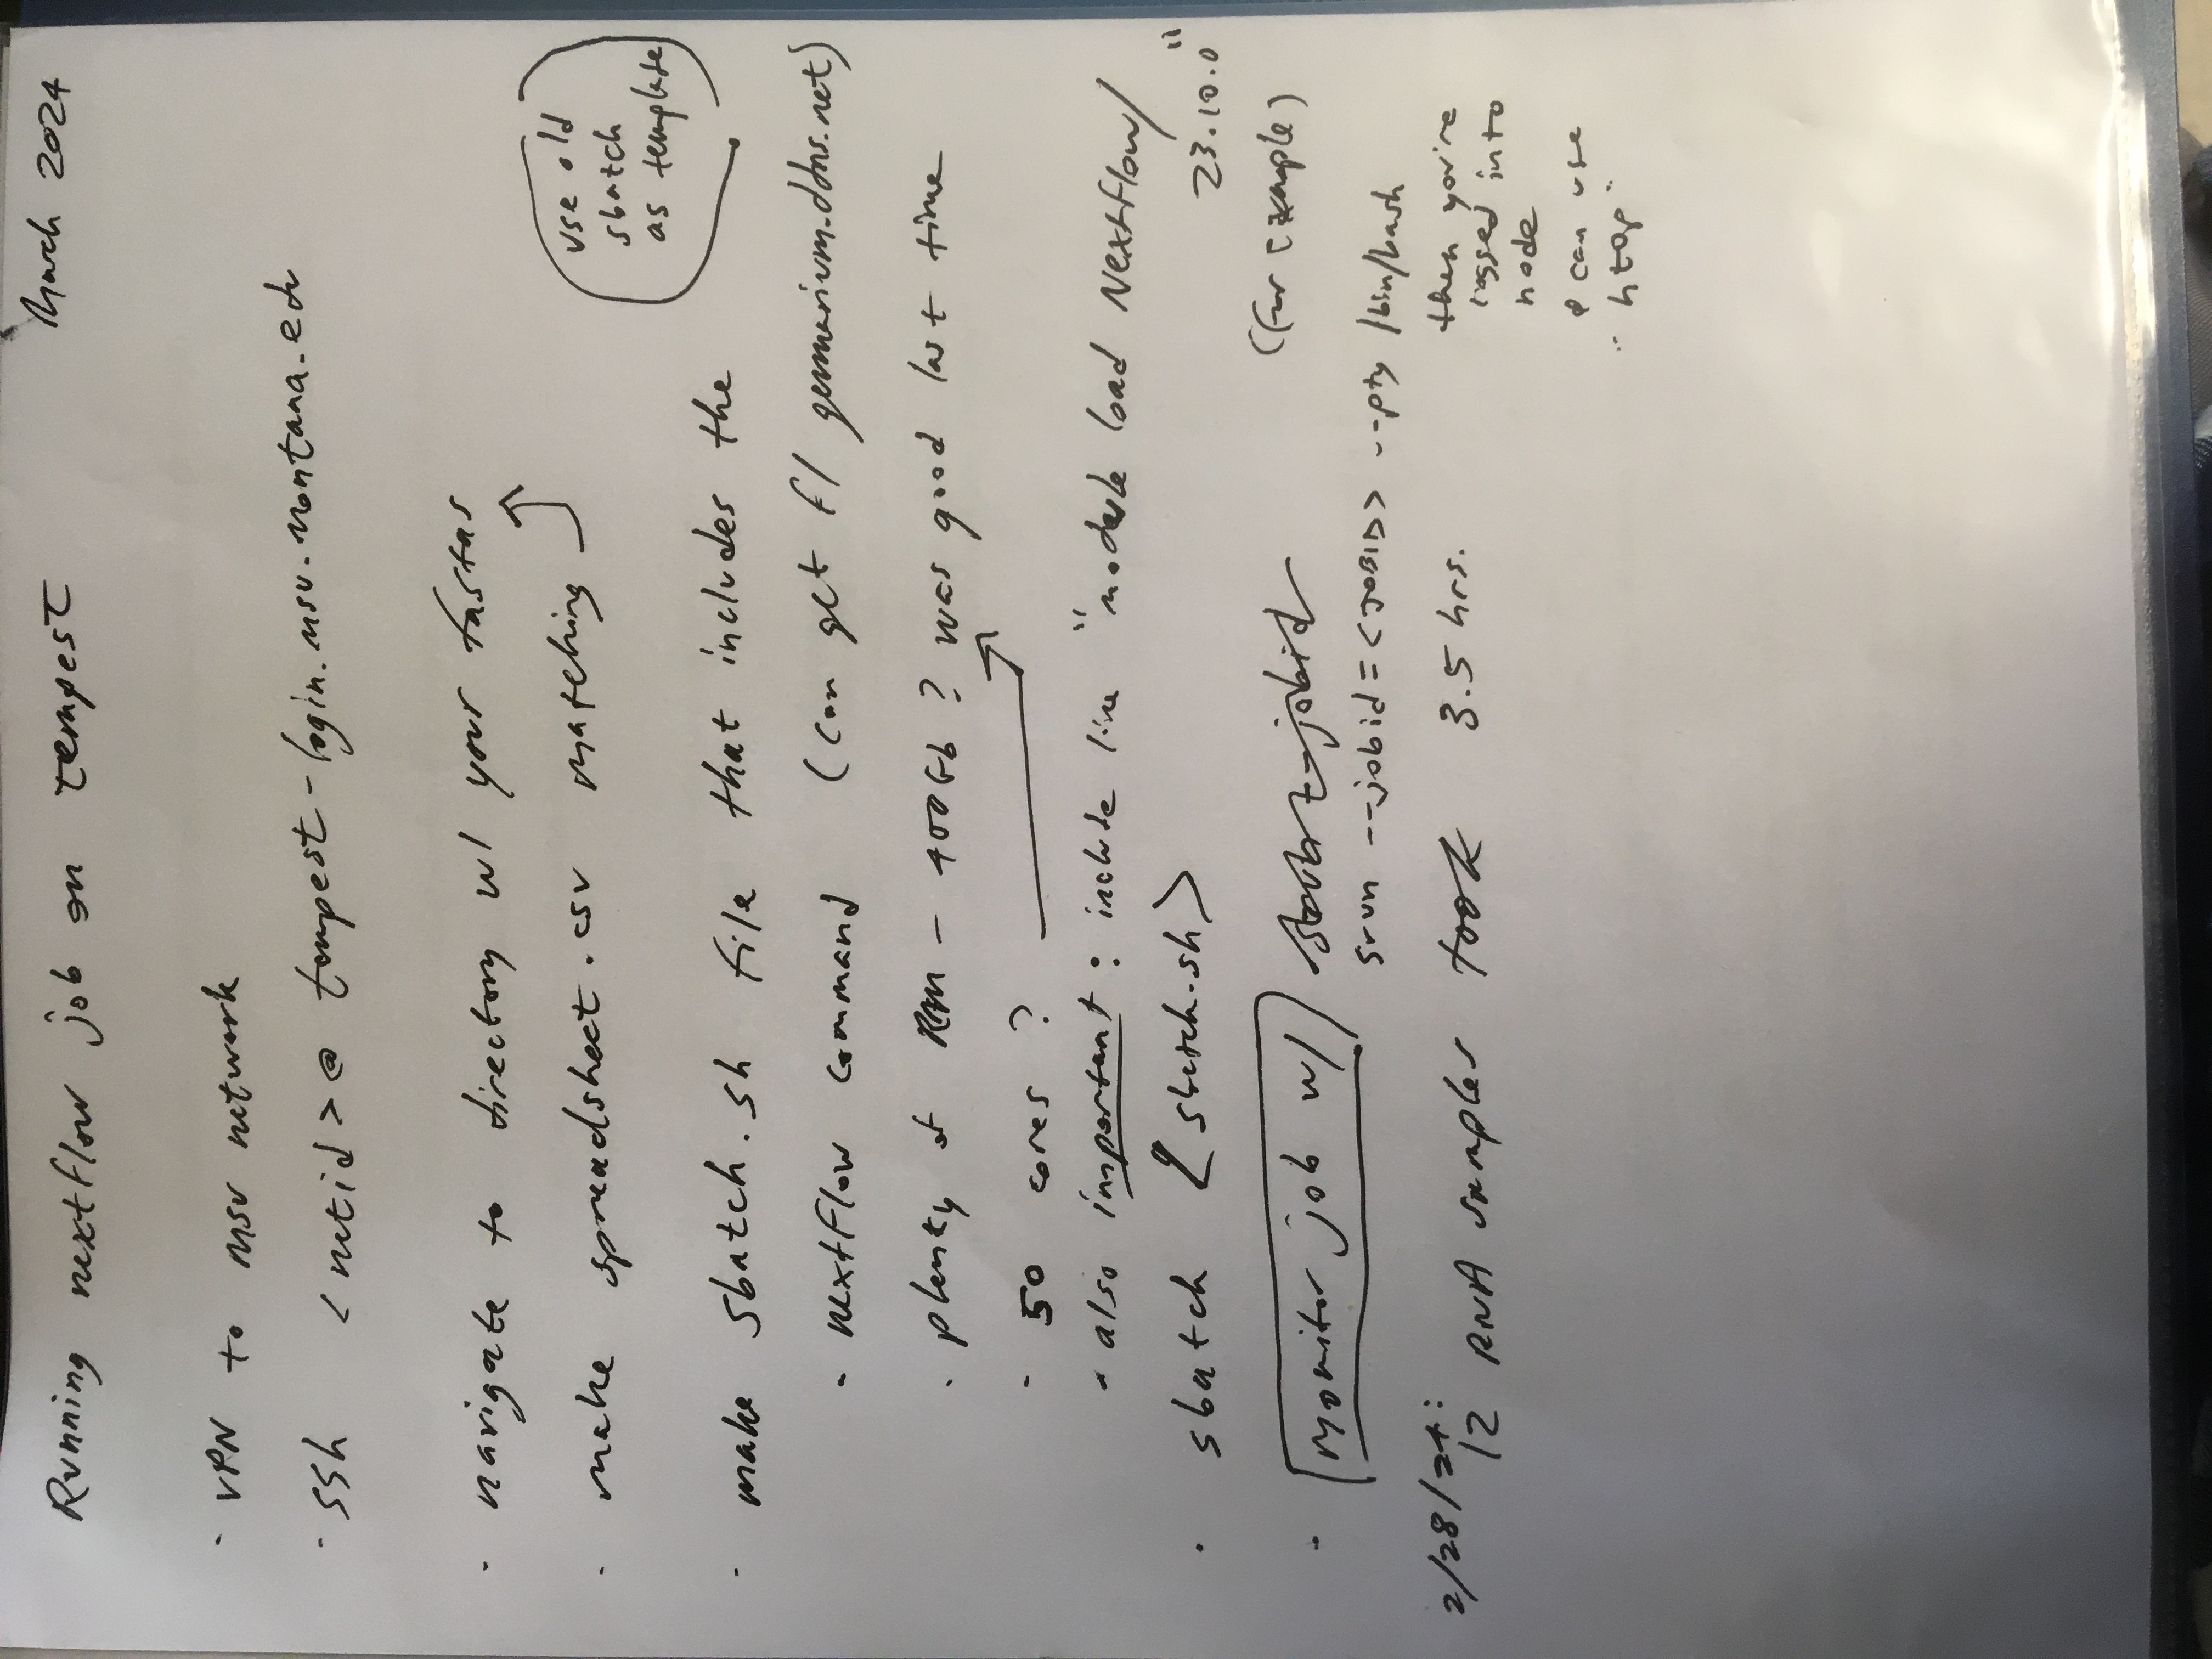 Running nextflow job on tempest March 2024
· VPN to MSU network
· ssh <netid>@tempest-login.msu.montana.edu
· navigate to directory w/ your fastas
· make spreadsheet.csv matching
use old
sbatch
as template
· make sbatch.sh file that includes the
· nextflow command (can get f/ gemmarium.ddns.net)
· plenty of RAM - 400Gb? was good last time
· 50 cores?
· also important: include line "module load Nextflow/
23.10.0"
(for example)
· sbatch <sbatch.sh>
· monitor job w/
srun --jobid=<JOBID> --pty /bin/bash
then you're
logged into
node
& can use
htop
2/28/24:
12 RNA samples took 3.5 hrs.